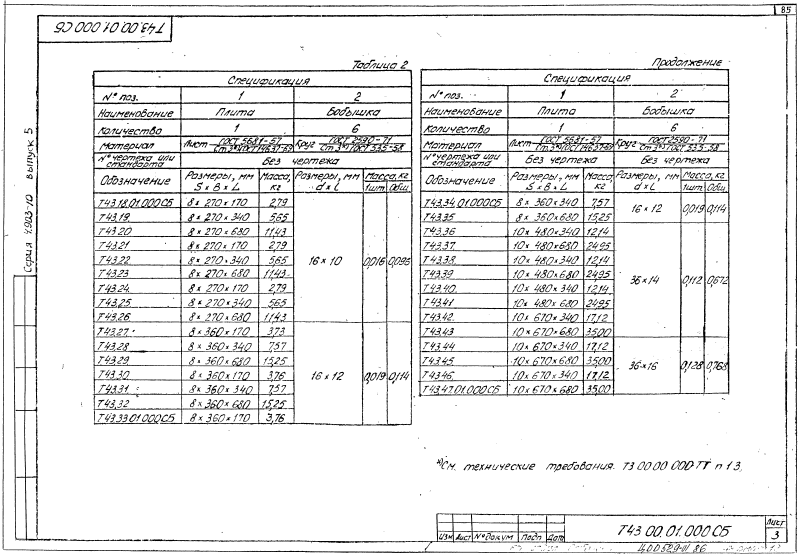 85
Т43.00.01.000 СБ
Серия 4.903-10 выпуск 5
Таблица 2
Спецификация
№ поз. 1 2
Наименование Плита Бобышка
Количество 1 6
Материал Лист ГОСТ 5681-57 Круг ГОСТ 2590-71
№ чертежа или стандарта Без чертежа
Обозначение Размеры, мм S × B × L Масса, кг Размеры, мм d × L Масса, кг 1шт. Общ.
Т43.18.01.000СБ 8 × 270 × 170 2,79
Т43.19 8 × 270 × 340 5,65
Т43.20 8 × 270 × 680 11,43
Т43.21 8 × 270 × 170 2,79
Т43.22 8 × 270 × 340 5,65 16 × 10 0,016 0,096
Т43.23 8 × 270 × 680 11,43
Т43.24 8 × 270 × 170 2,79
Т43.25 8 × 270 × 340 5,65
Т43.26 8 × 270 × 680 11,43
Т43.27 8 × 360 × 170 3,73
Т43.28 8 × 360 × 340 7,57
Т43.29 8 × 360 × 680 15,25
Т43.30 8 × 360 × 170 3,76 16 × 12 0,019 0,114
Т43.31 8 × 360 × 340 7,57
Т43.32 8 × 360 × 680 15,25
Т43.33.01.000СБ 8 × 360 × 170 3,76
Продолжение
Спецификация
№ поз. 1 2
Наименование Плита Бобышка
Количество 1 6
Материал Лист ГОСТ 5681-57 Круг ГОСТ 2590-71
№ чертежа или стандарта Без чертежа Без чертежа
Обозначение Размеры, мм S × B × L Масса, кг Размеры, мм d × L Масса, кг 1шт. Общ.
Т43.34.01.000СБ 8 × 360 × 340 7,57 16 × 12 0,019 0,114
Т43.35 8 × 360 × 680 15,25
Т43.36 10 × 480 × 340 12,14
Т43.37 10 × 480 × 680 24,95
Т43.38 10 × 480 × 340 12,14
Т43.39 10 × 480 × 680 24,95 36 × 14 0,112 0,672
Т43.40 10 × 480 × 340 12,14
Т43.41 10 × 480 × 680 24,95
Т43.42 10 × 670 × 340 17,12
Т43.43 10 × 670 × 680 35,00
Т43.44 10 × 670 × 340 17,12
Т43.45 10 × 670 × 680 35,00 36 × 16 0,128 0,768
Т43.46 10 × 670 × 340 17,12
Т43.47.01.000СБ 10 × 670 × 680 35,00
*)См. технические требования. Т3.00.00.000 ТТ п 1.3.
Изм Лист № докум Подп Дата
Т43.00.01.000 СБ
Лист
3
86